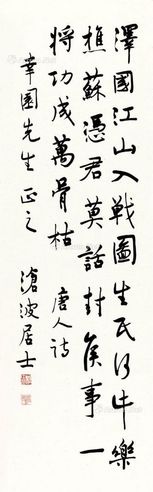 澤國江山入戰圖生民何計樂
樵蘇憑君莫話封侯事一
將功成萬骨枯 唐人詩
幸園先生正之
滄波居士